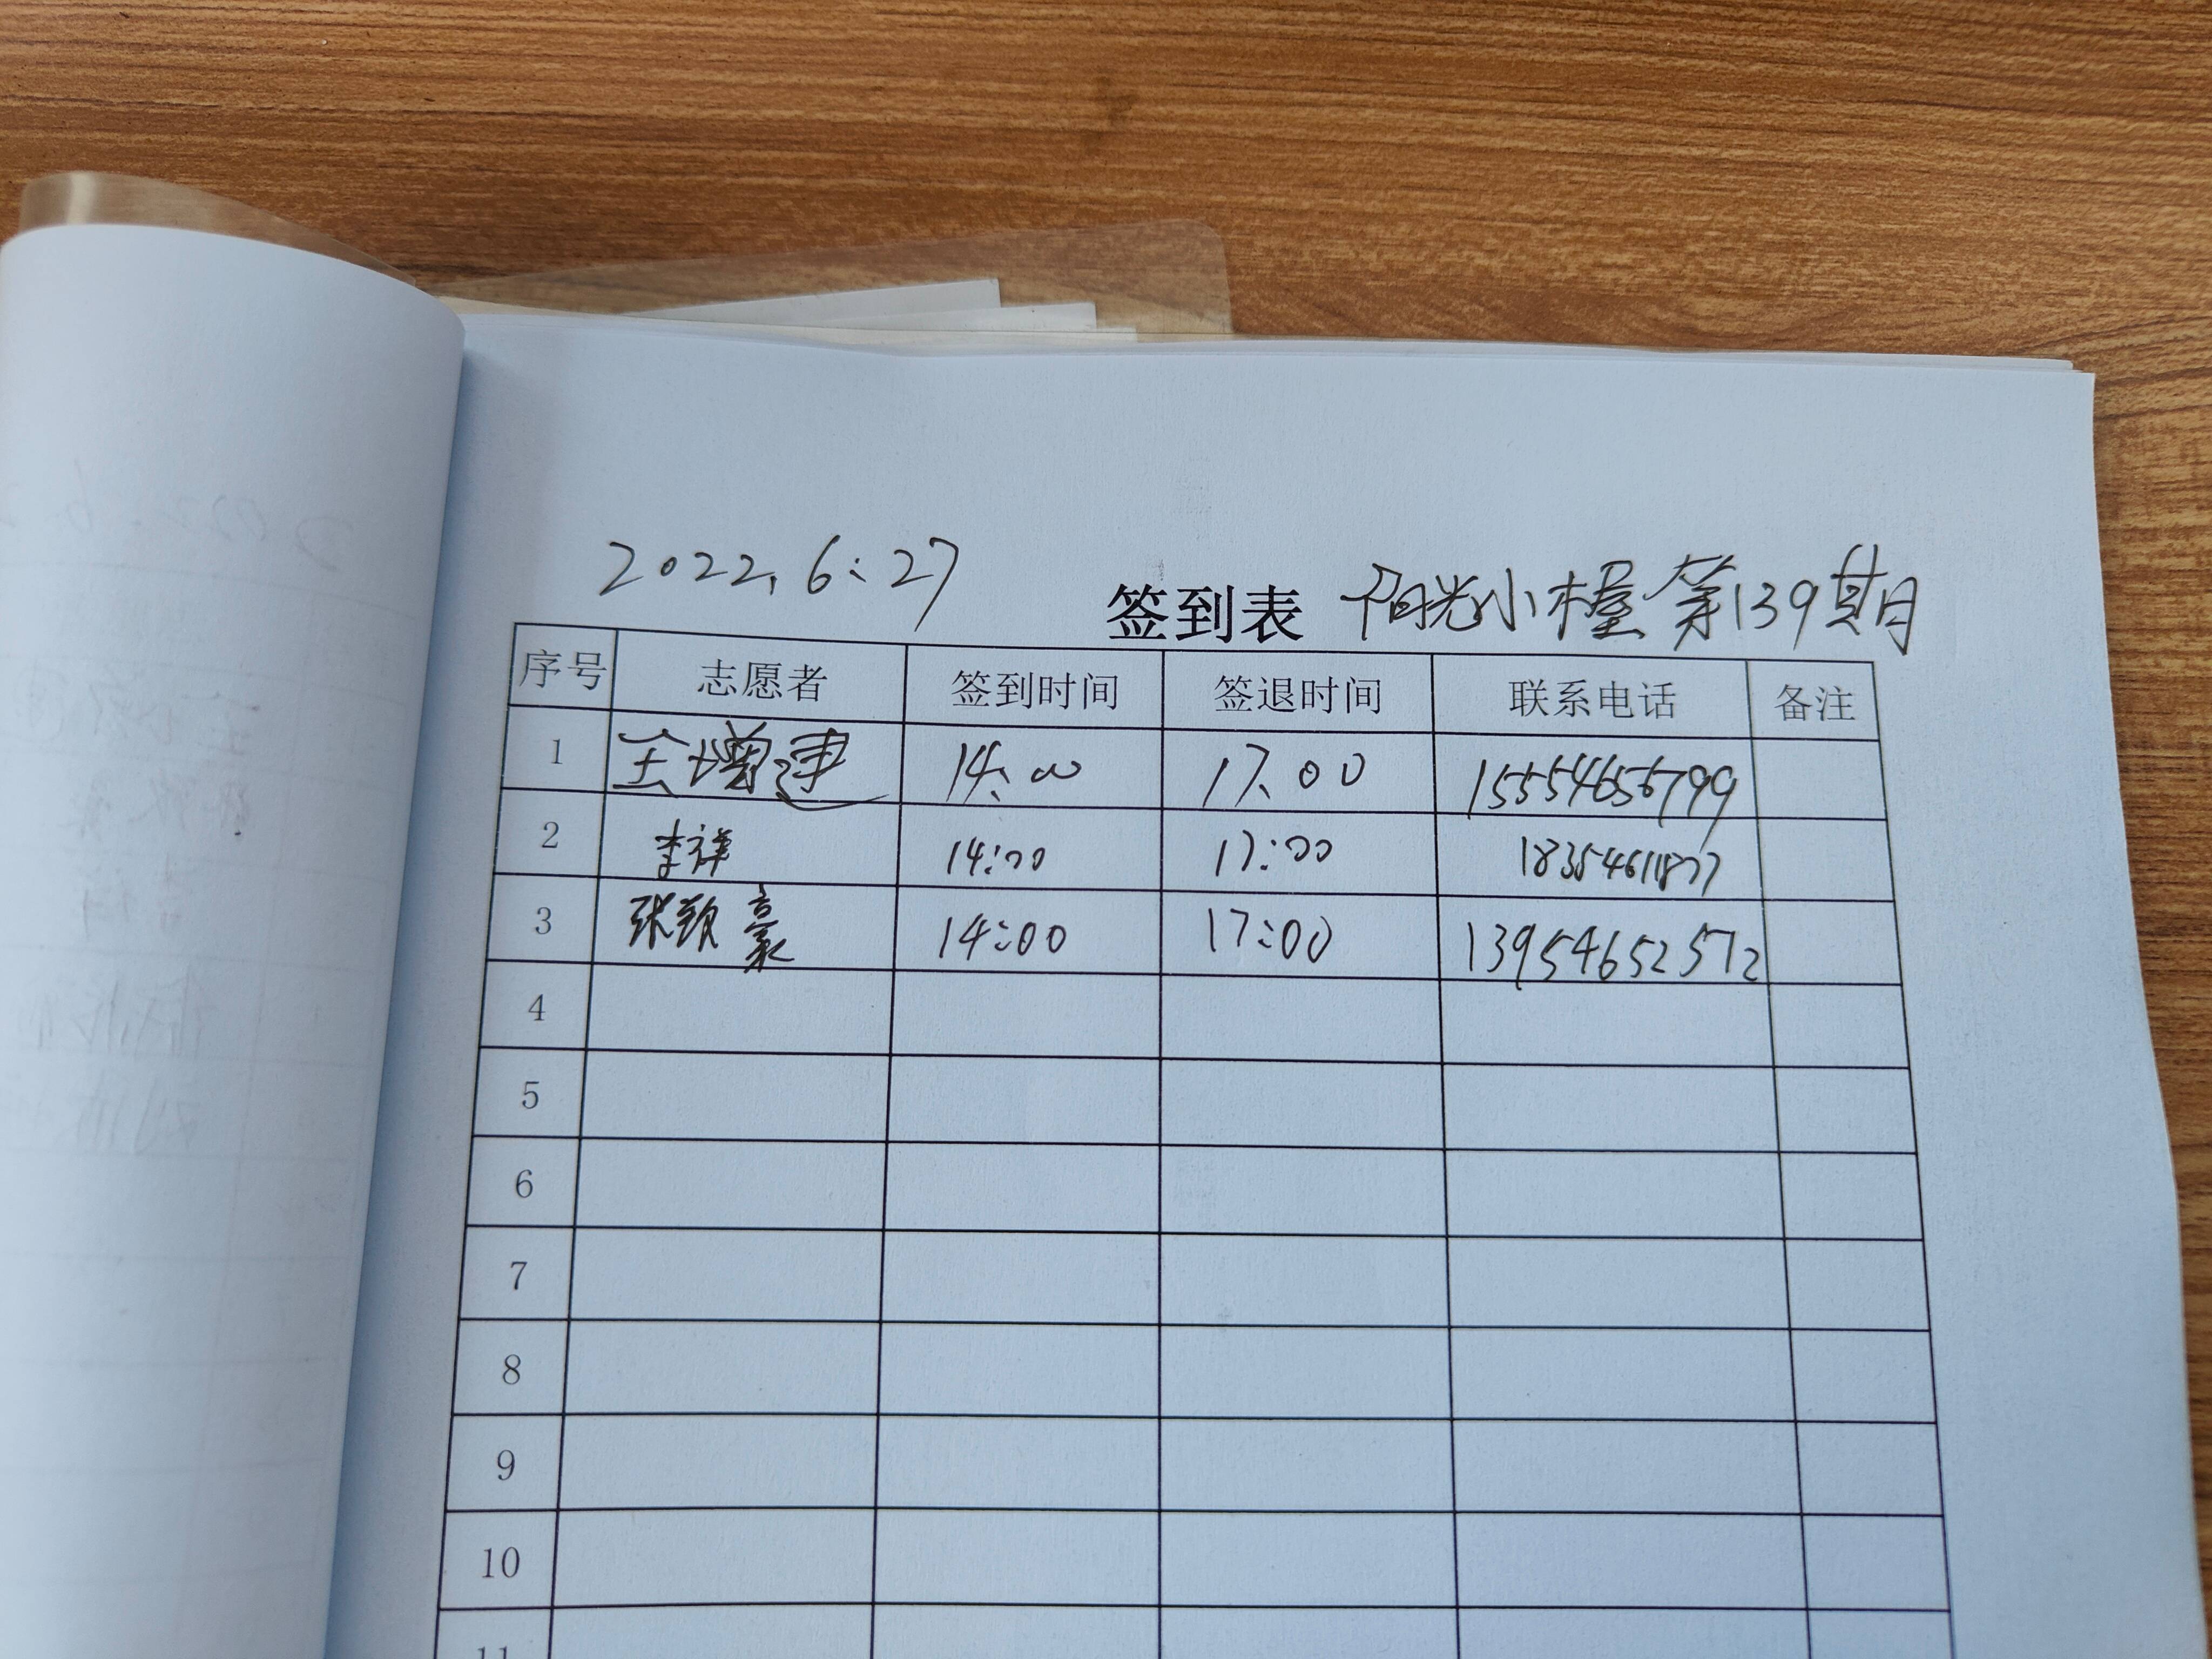 2022.6.27
签到表 阳光小木屋第139期
序号 志愿者 签到时间 签退时间 联系电话 备注
1 王增建 14:00 17:00 15554656799
2 李祥 14:00 17:00 18354611877
3 张颖豪 14:00 17:00 13954652572
4
5
6
7
8
9
10
11